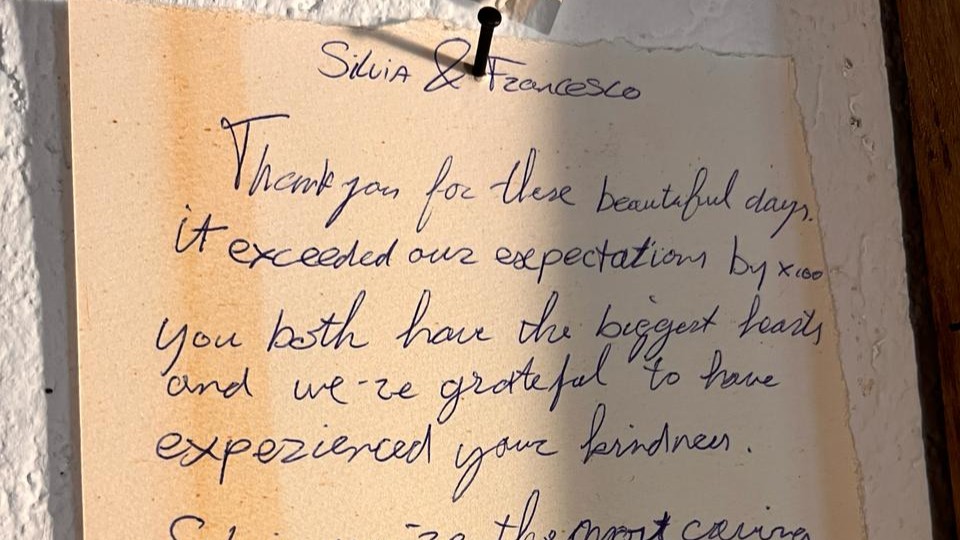 Silvia & Francesco
Thank you for these beautiful days.
it exceeded our expectations by x100
you both have the biggest hearts
and we-re grateful to have
experienced your kindness.
the most caring